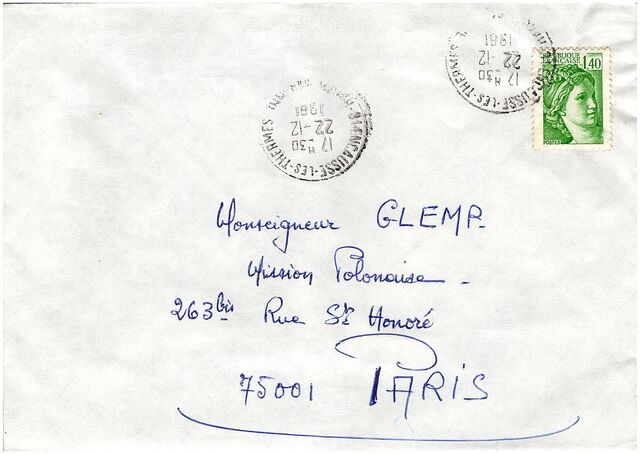 RÉPUBLIQUE
FRANÇAISE
1,40
POSTES
17 H30
22-12
1981
ENCAUSSE-LES-THERMES
17 H30
22-12
1981
LES-THERMES
Monseigneur GLEMP.
Mission Polonaise -
263 bis Rue St Honoré
75001 PARIS